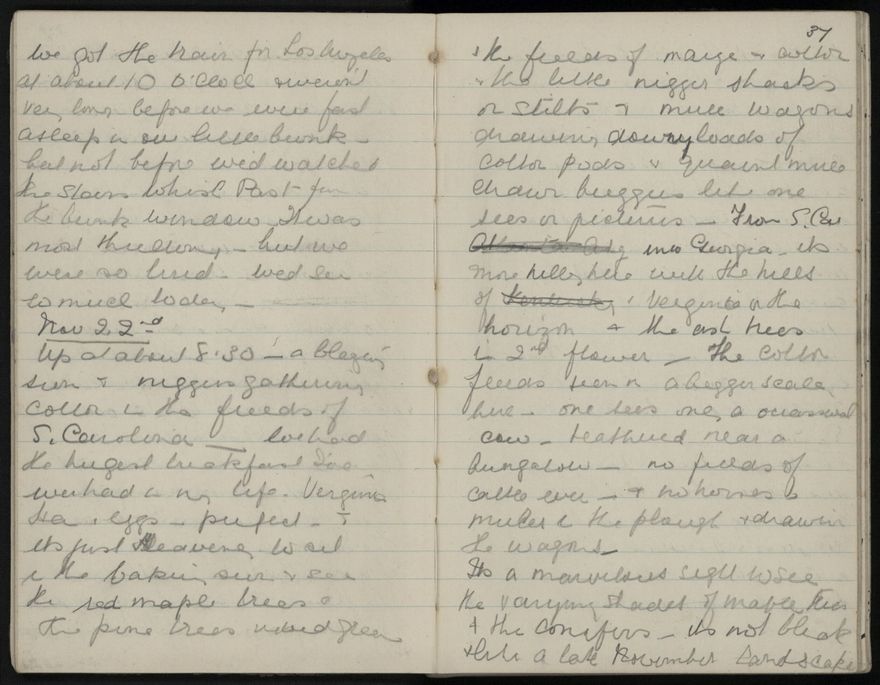 we got the train for Los Angeles
at about 10 O'Clock & weren't
very long before we were fast
asleep in our little bunk –
but not before we'd watched
the stars whisk Past from
the bunk window. It was
most thrilling, – but we
were so tired – we'd seen
so much today –
Nov 22nd
Up at about 8.30 – a blazing
sun & niggers gathering
cotton in the fields of
S. Carolina we had
the hugest breakfast I've
ever had in my life. Virginia
Ham & eggs – perfect – &
its just Heavenly to sit
in the baking sun & see
the red maple trees &
the pine trees mixed green
37
& the fields of maize & cotton
& the little nigger shacks
on stilts & mule wagons
drawing downy loads of
cotton pods & quaint mule
drawn buggies like one
sees in pictures – From S. Car
into Georgia – its
more hilly here with the hills
of Kentucky & Virginia on the
horizon & the ash trees
in 2nd flower – The cotton
fields seem on a bigger scale
here – one sees only a occasional
cow – teathered near a
Bungalow – no fields of
cattle ever – & no horses
mules in the plough & drawing
the wagons –
Its a marvelous sight to see
the varying shades of maple trees
& the conifers – its not bleak
& like a late November Landscape